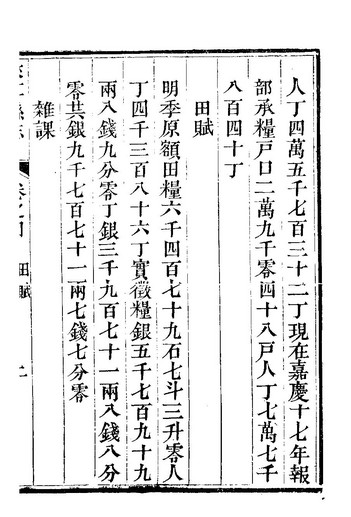 人丁四萬五千七百三十二丁現在嘉慶十七年報
部承糧戸口二萬九千零四十八戸人丁七萬七千
八百四十丁
田賦
明季原額田糧六千四百七十九石七斗三升零人
丁四千三百八十六丁實徵糧銀五千七百九十九
兩八錢九分零丁銀三千九百七十一兩八錢八分
零共銀九千七百七十一兩七錢七分零
雜課
田賦